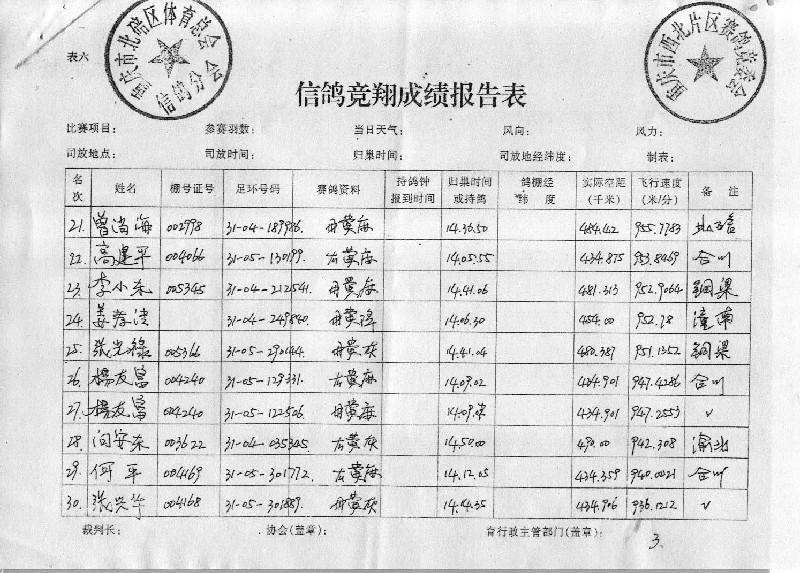 表六
重庆市北碚区体育总会
信鸽分会
重庆市西北片区赛鸽竞委会
信鸽竞翔成绩报告表
比赛项目： 参赛羽数： 当日天气： 风向： 风力：
司放地点： 司放时间： 归巢时间： 司放地经纬度： 制表：
名次 姓名 棚号证号 足环号码 赛鸽资料 持鸽钟报到时间 归巢时间或持鸽 鸽棚经纬度 实际空距(千米) 飞行速度(米/分) 备注
21. 曾尚海 002998 31-04-189986. 黄麻 14.36.50 484.42 955.7783 北碚
22. 高建平 004066 31-05-130199. 右黄麻 14.05.55 434.875 953.8469 合川
23. 李小东 005345 31-04-212541. 黄麻 14.41.06 481.313 952.9064 铜梁
24. 姜孝洁 31-04-249840. 14.06.30 454.00 952.78 潼南
25. 張光祿 005366 31-05-290444. 黄灰 14.41.04 480.387 951.1352 銅梁
26. 楊友富 004240 31-05-129331. 右黄麻 14.09.02 434.901 947.4286 合川
27. 楊友富 004240 31-05-122506. 黄麻 434.901 947.2553 〃
28. 向安东 003622 31-04-035345. 右黄灰 14.50.00 490.00 942.308 渝北
29. 何平 004169 31-05-301772. 右黄麻 14.12.05 434.359 940.0021 合川
30. 張兴华 004168 31-05-301889. 黄灰 14.14.35 434.906 936.1212 〃
裁判长： 协会(盖章)： 育行政主管部门(盖章)： 3.